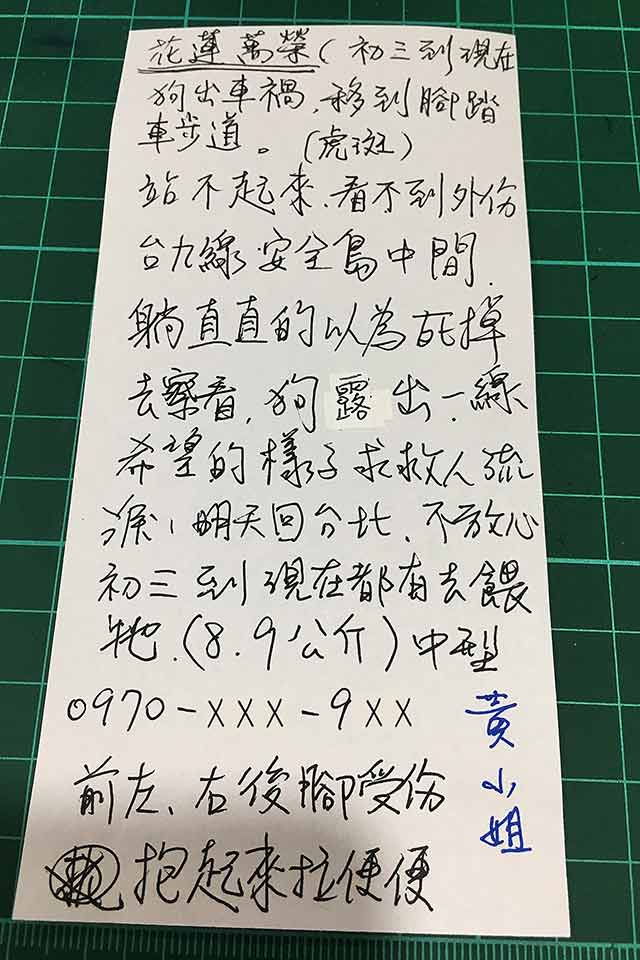 花蓮萬榮(初三到現在
狗出車禍、移到腳踏
車步道。(虎斑)
站不起來、看不到外份
台九線安全島中間、
躺直直的以為死掉
去察看,狗露出一線
希望的樣子求救人流
淚,明天回台北、不放心
初三到現在都有去餵
牠、(8.9公斤)中型
0970-XXX-9XX
黃小姐
前左、右後腳受份
抱起來拉便便